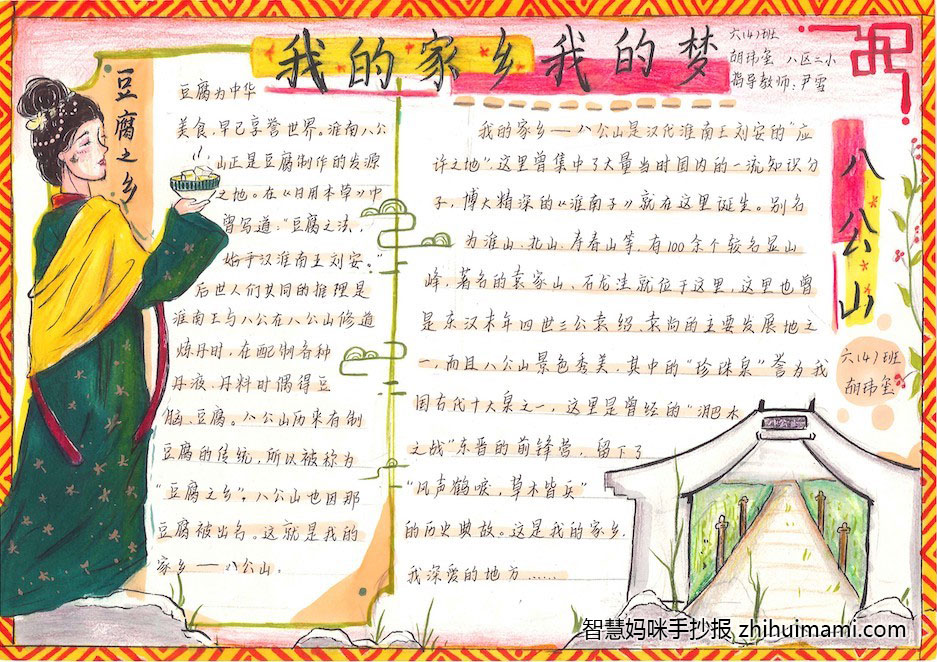 我的家乡我的梦
六(4)班
胡玮玺 八区二小
指导教师:尹雪
豆腐之乡
豆腐为中华
美食,早已享誉世界。淮南八公
山正是豆腐制作的发源
之地。在《日用本草》中
曾写道:“豆腐之法,
始于汉淮南王刘安。”
后世人们共同的推理是
淮南王与八公在八公山修道
炼丹时,在配制各种
丹液、丹料时偶得豆
脑、豆腐。八公山历来有制
豆腐的传统,所以被称为
“豆腐之乡”,八公山也因那
豆腐被出名。这就是我的
家乡——八公山。
我的家乡——八公山是汉代淮南王刘安的“应
许之地”这里曾集中了大量当时国内的一流知识分
子,博大精深的《淮南子》就在这里诞生。别名
为淮山、北山、寿春山等,有100余个较名显山
峰,著名的袁家山、石龙洼就位于这里,这里也曾
是东汉末年四世三公袁绍、袁尚的主要发展地之
一,而且八公山景色秀美,其中的“珍珠泉”誉为我
国古代十大泉之一,这里是曾经的“淝水
之战”东晋的前锋营,留下了
“风声鹤唳,草木皆兵”
的历史典故。这是我的家乡,
我深爱的地方……
八公山
六(4)班
胡玮玺
智慧妈咪手抄报 zhihuimami.com